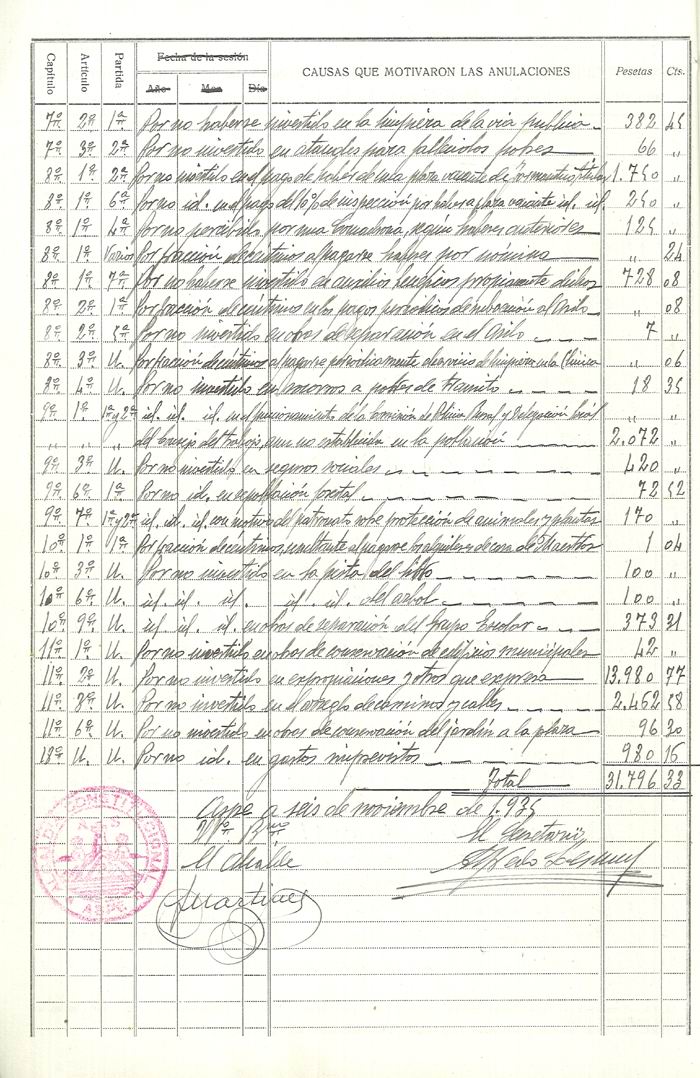 Capítulo Artículo Partida Fecha de la sesión CAUSAS QUE MOTIVARON LAS ANULACIONES Pesetas Cts.
Año Mes Día
7º 2º 1ª Por no haberse invertido en la limpieza de la via publica 382 45
7º 3º 2ª Por no invertido en ataudes para fallecidos pobres 66 "
8º 1º 2ª Por no invertido en el pago de haber de una plaza vacante de 1.750 "
8º 1º 6ª Por no id. en el pago del 10% de inspección por haber plaza vacante id. id. 250 "
8º 1º 4ª Por no percibido por una Comadrona, segun haberes anteriores 125 "
8º 1º Varios Por fracción de centimos al pagarse haberes por nómina " 24
8º 1º 7ª Por no haberse invertido en auxilios benéficos propiamente dichos 728 08
8º 2º 1ª Por fracción de céntimos en los pagos periodicos de subvención al Asilo " 08
8º 2º 5ª Por no invertido en obras de reparación en el Asilo 7 "
8º 3º U. Por fracción de centimos al pagarse periodicamente el servicio de limpieza en la Clínica " 06
8º 4º U. Por no invertido en socorros a pobres de transito 18 35
9º 1º 1ª y 2ª id. id. id. en el funcionamiento de la Comisión de Policia Rural y Delegación local " "
" " " del Consejo del trabajo, que no establecida en la población 2.072 "
9º 3º U. Por no invertido en seguros sociales 420 "
9º 6º 1ª Por no id. en repoblación forestal 72 52
9º 7º 1ª y 2ª id. id. id. con motivo del patronato sobre protección de animales y plantas 170 "
10º 1º 1ª Por fracción de céntimos, resultante al pagarse los alquileres de casa de Maestros 1 04
10º 3º U. Por no invertido en la fiesta del libro 100 "
10º 6º U. id. id. id. id. id. del arbol 100 "
10º 9º U. id. id. id. en obras de reparación del Grupo Escolar 373 31
11º 1º U. Por no invertido en obras de conservación de edificios municipales 42 "
11º 2º U. Por no invertido en expropiaciones y otros que expresa 13.980 77
11º 3º U. Por no invertido en el arreglo de caminos y calles 2.462 58
11º 6º U. Por no invertido en obras de conservación del jardín a la plaza 96 30
18º U. U. Por no id. en gastos imprevistos 980 15
Total 31.796 33
Aspe a seis de noviembre de 1.935
Vº Bº
El Secretario,
El Alcalde
AMartinez
ALCALDIA CONSTITUCIONAL
ASPE